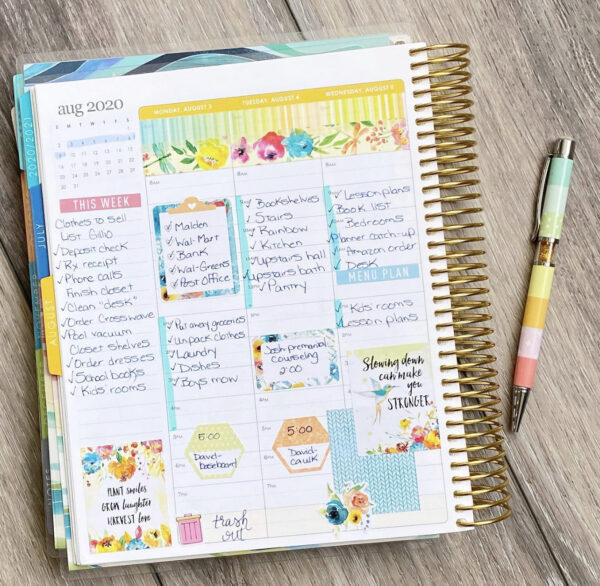 aug 2020
S M T W T F S
THIS WEEK
Clothes to Sell
List Gillio
✓ Deposit check
✓ Rx receipt
✓ Phone calls
Finish closet
✓ Clean "desk"
✓ Order Crosswave
✓ Pool vacuum
Closet shelves
✓ Order dresses
✓ School books
✓ Kids rooms
PLANT smiles
GROW laughter
HARVEST love
MONDAY, AUGUST 3
✓ Malden
✓ Wal-Mart
✓ Bank
✓ Wal-Greens
✓ Post Office
✓ Put away groceries
✓ Unpack clothes
✓ Laundry
✓ Dishes
✓ Boys mow
5:00
David-
baseboard
trash
out
TUESDAY, AUGUST 4
✓ Bookshelves
✓ Stairs
✓ Rainbow
✓ Kitchen
✓ Upstairs hall
✓ Upstairs bath
✓ Pantry
Josh-premarital
counseling
2:00
5:00
David-
caulk
WEDNESDAY, AUGUST 5
✓ Lesson plans
✓ Book list
✓ Bedrooms
Planner catch-up
✓ Amazon order
✓ Desk
MENU PLAN
✓ Kids rooms
✓ Lesson plans
Slowing down
can make
you
STRONGER.
2020/2021
JULY
AUGUST
NOTES